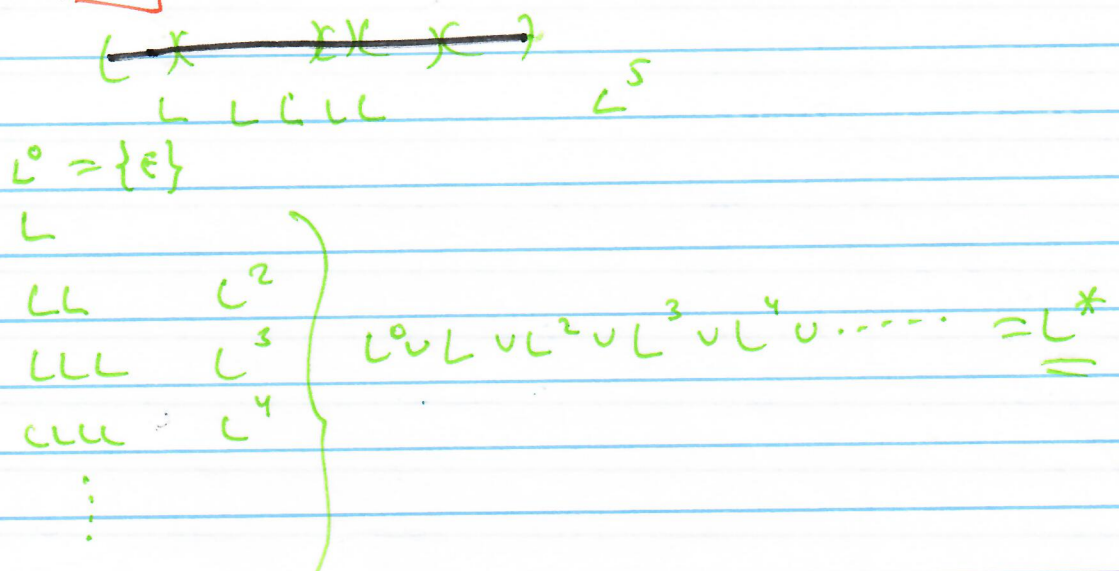 ( )( )( )( )( )
L L L L L L⁵
L⁰ = {ϵ}
L
LL L²
LLL L³
LLLL L⁴ L⁰ ∪ L ∪ L² ∪ L³ ∪ L⁴ ∪ ...... = L*
⋮